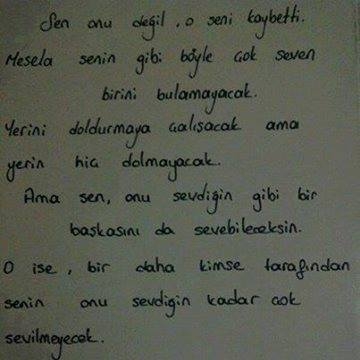 Sen onu değil, o seni kaybetti.
Mesela senin gibi böyle çok seven
birini bulamayacak.
Yerini doldurmaya çalışacak ama
yerin hiç dolmayacak.
Ama sen, onu sevdiğin gibi bir
başkasını da sevebileceksin.
O ise, bir daha kimse tarafından
senin onu sevdiğin kadar çok
sevilmeyecek.